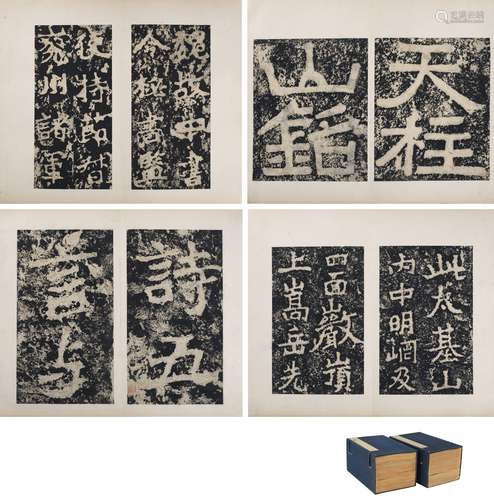 魏故中書
令秘書監
使持節督
兗州諸軍
天柱
山銘
詩五
言与
此太基山
内中明堈及
四面巖嶺
上嵩岳先